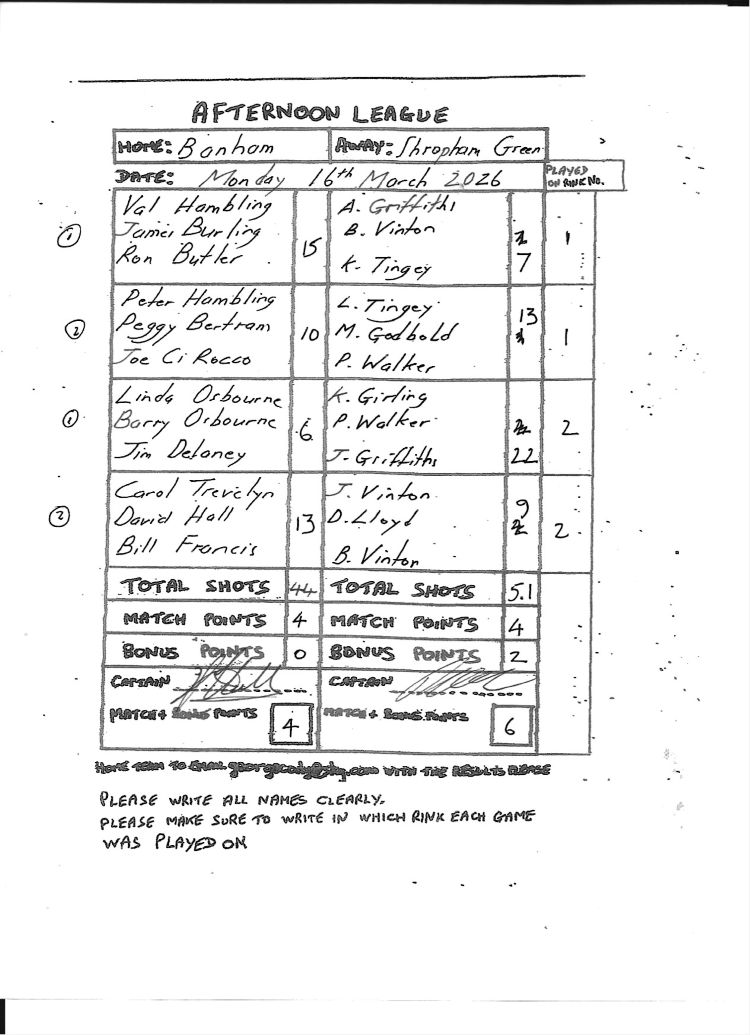 AFTERNOON LEAGUE
HOME: Banham AWAY: Shropham Green
DATE: Monday 16th March 2026 PLAYED ON RINK No.
Val Hambling A. Griffiths
① James Burling 15 B. Vinton 1
Ron Butler K. Tingey 7
Peter Hambling L. Tingey 13
② Peggy Bertram 10 M. Godbold 1
Joe Ci Rocco P. Walker
Linda Osbourne K. Girling
① Barry Osbourne 6 P. Walker 2
Jim Delaney J. Griffiths 22
Carol Trevelyn J. Vinton 9
② David Hall 13 D. Lloyd 2
Bill Francis B. Vinton
TOTAL SHOTS 44 TOTAL SHOTS 51
MATCH POINTS 4 MATCH POINTS 4
BONUS POINTS 0 BONUS POINTS 2
CAPTAIN CAPTAIN
MATCH + BONUS POINTS 4 MATCH + BONUS POINTS 6
HOME TEAM TO EMAIL WITH THE RESULTS PLEASE
PLEASE WRITE ALL NAMES CLEARLY.
PLEASE MAKE SURE TO WRITE IN WHICH RINK EACH GAME
WAS PLAYED ON